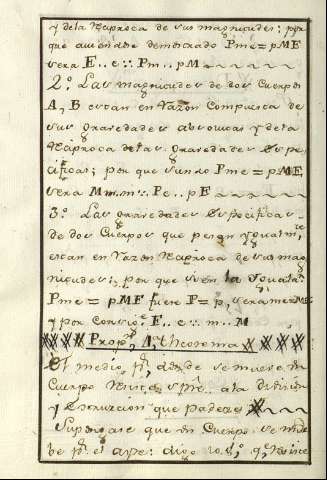 y de la Reproca de sus magnitudes: por
que aviendose demostrado Pme = pME
sera E..e :: Pm..pM
2º Las magnitudes de dos Cuerpos
A, B estan en razon compuesta de
sus gravedades absolutas y de la
Reciproca de las gravedades Espe
cificas; por que siendo Pme = pME
sera M..m :: Pe..pE
3º Las gravedades Especificas
de dos Cuerpos que pesan ygualmte
estan en Razon Reciproca de sus mag
nitudes; por que si en la ygualdad
Pme = pME fuere P = p, sera me = ME
y por consigte E..e :: m..M
Propn 1 theorema
El medio pr donde se mueve un
Cuerpo Resiste spre a la division
y que padece
Supongase que un Cuerpo se mue
be pr el ayre: digo